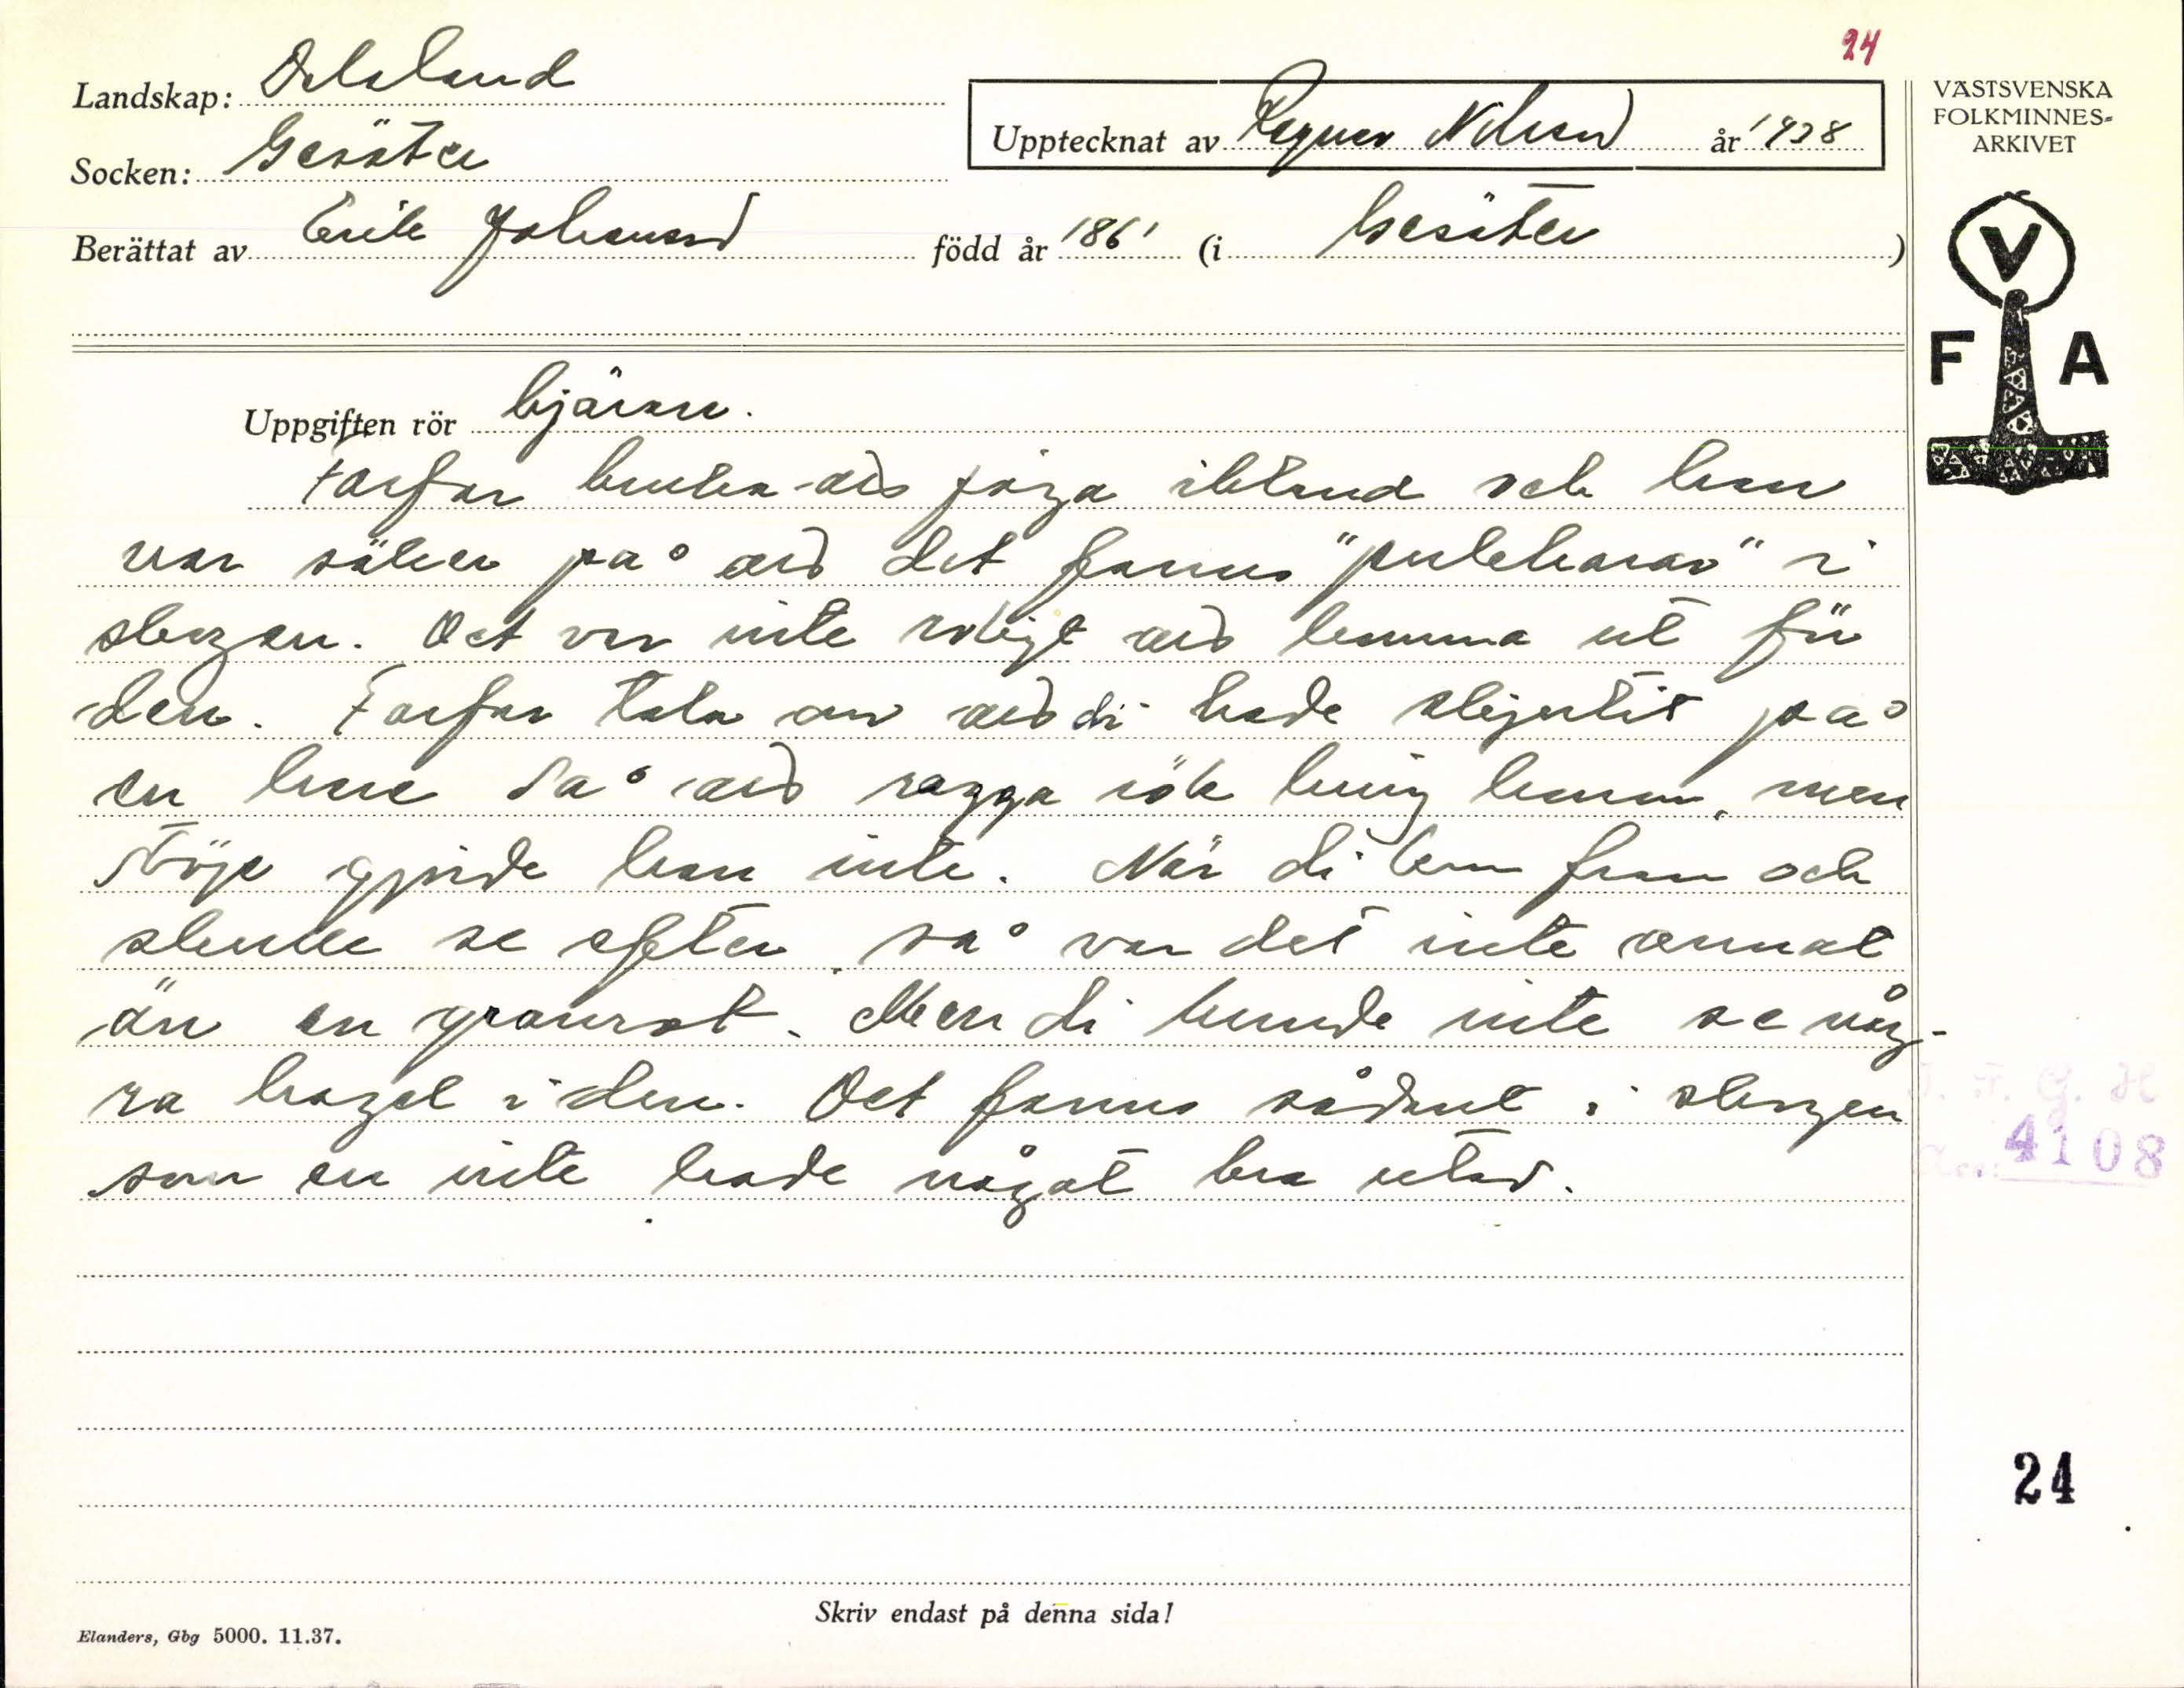 24
Landskap: Dalsland
Upptecknat av Ragnar Nilsson år 1938
VÄSTSVENSKA
FOLKMINNES-
ARKIVET
Socken: Gesäter
Berättat av Erik Johansson född år 1861 (i Gesäter)
V
F A
Uppgiften rör bjäran.
Farfar bruka å jaga ibland och han
var säker på ad det fanns "pukharar" i
skogen. Det var inte roligt ad komma ut för
den. Farfar tala om ad di hade skjutit på
en hare så ad ragga rök kring honom, men
dröje gjorde han inte. När di kom fram och
skulle se efter, så var det inte annat
än en granrot. Men di kunde inte se någ-
ra hagel i den. Det fanns sådant i skogen
som en inte hade något bra utav.
4108
24
Skriv endast på denna sida!
Elanders, Gbg 5000. 11.37.